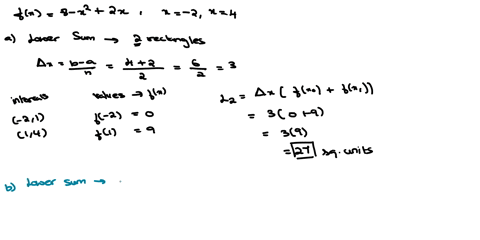 f(x) = 8-x² + 2x , x=-2, x=4
a) Lower Sum → 2 rectangles
Δx = b-a/n = 4+2/2 = 6/2 = 3
intervals values → f(x) L2 = Δx ( f(x0) + f(x1))
(-2,1) f(-2) = 0 = 3(0+9)
(1,4) f(1) = 9 = 3(9)
= 27 sq. units
b) Lower sum →